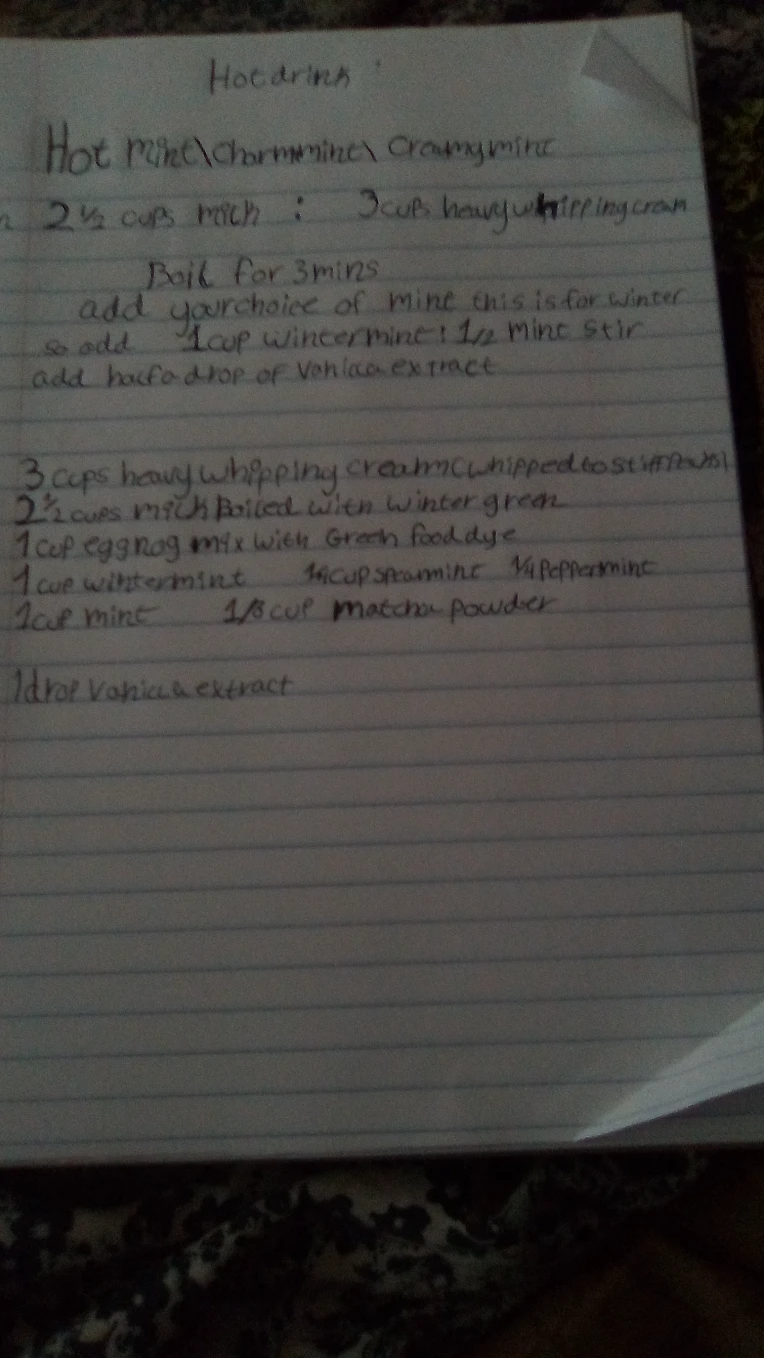 Hot drink
Hot mint\Charmmint\ Creamymint
2 ½ cups milk : 3cups heavy whipping cream
Boil for 3mins
add your choice of mint this is for winter
so add 1cup wintermint: 1/2 mint stir
add half a drop of Vanilla extract
3 cups heavy whipping cream(whipped to stiff
2 ½ cups milk Boiled with winter green
1 cup eggnog mix with Green food dye
1 cup wintermint ¼ cup spearmint ¼ Peppermint
1 cup mint 1/8 cup matcha powder
1 drop vanilla extract